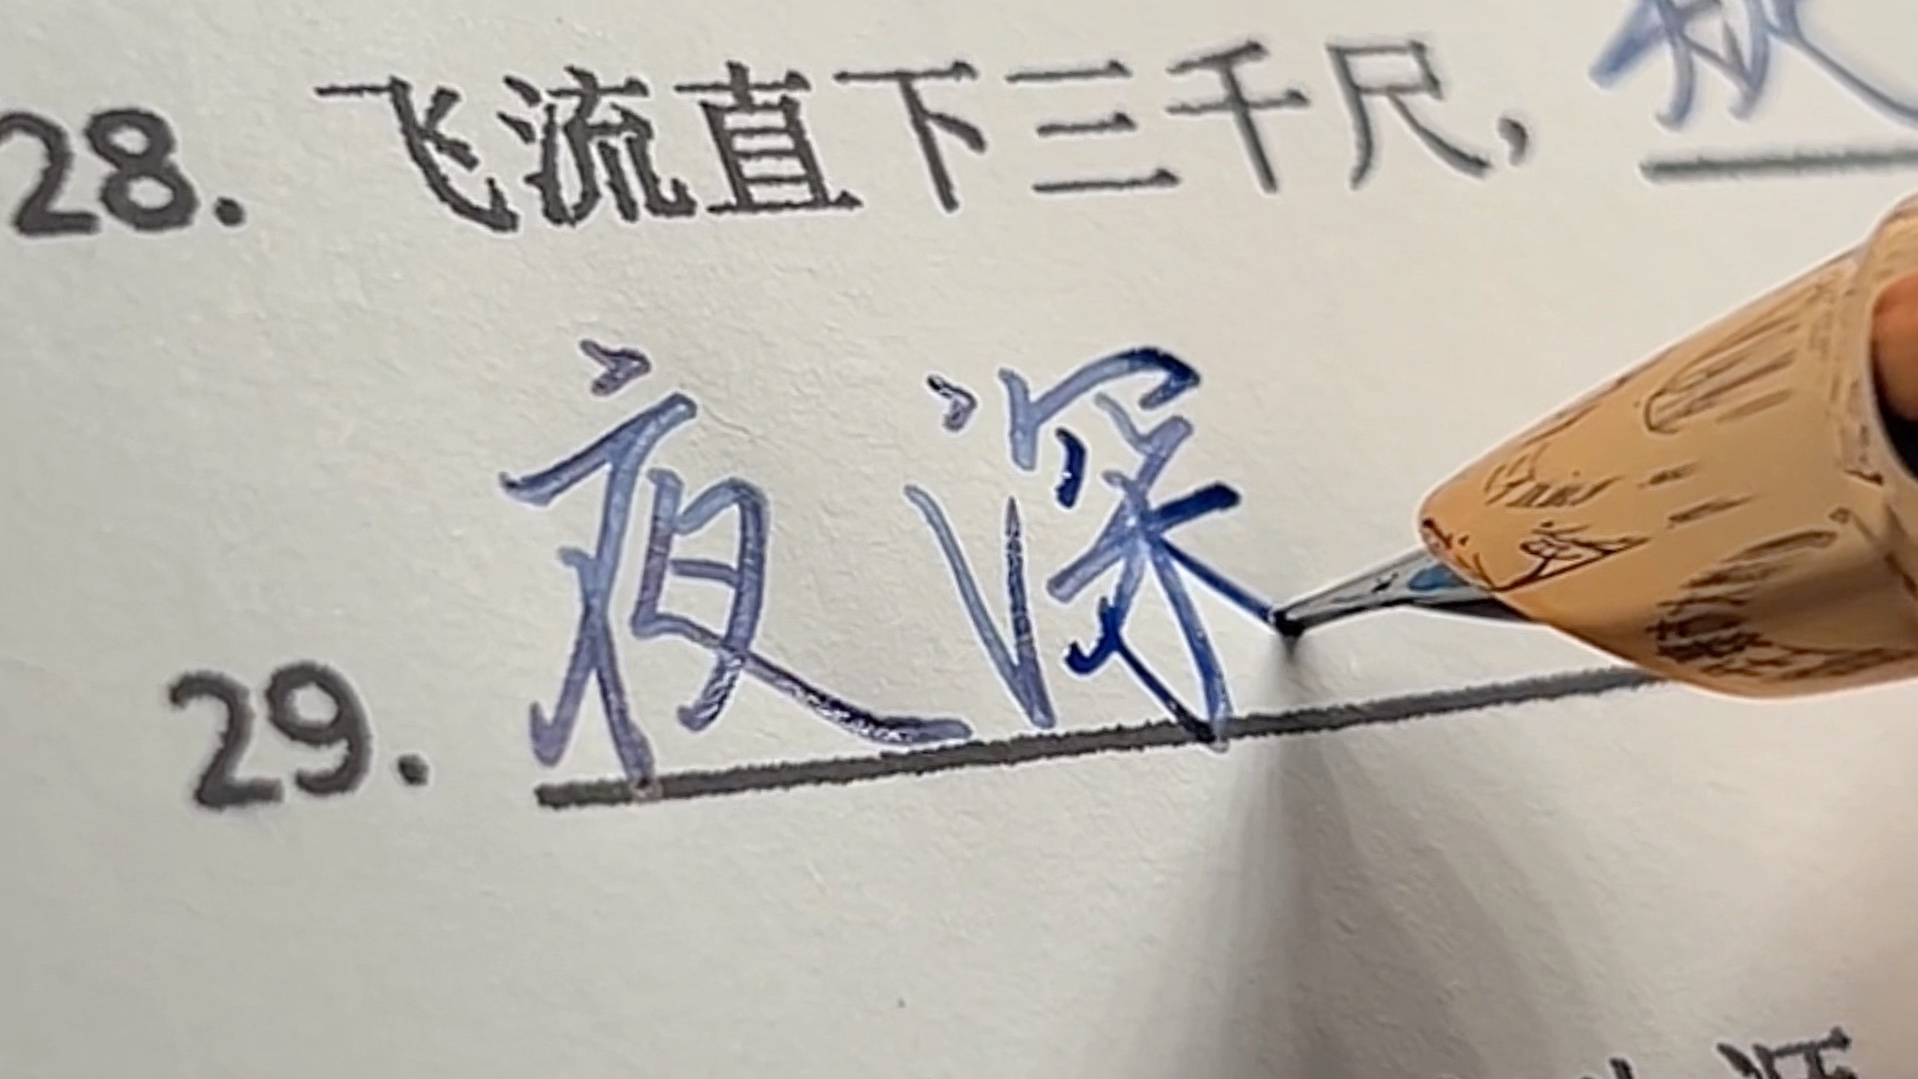 28. 飞流直下三千尺，
29. 夜深